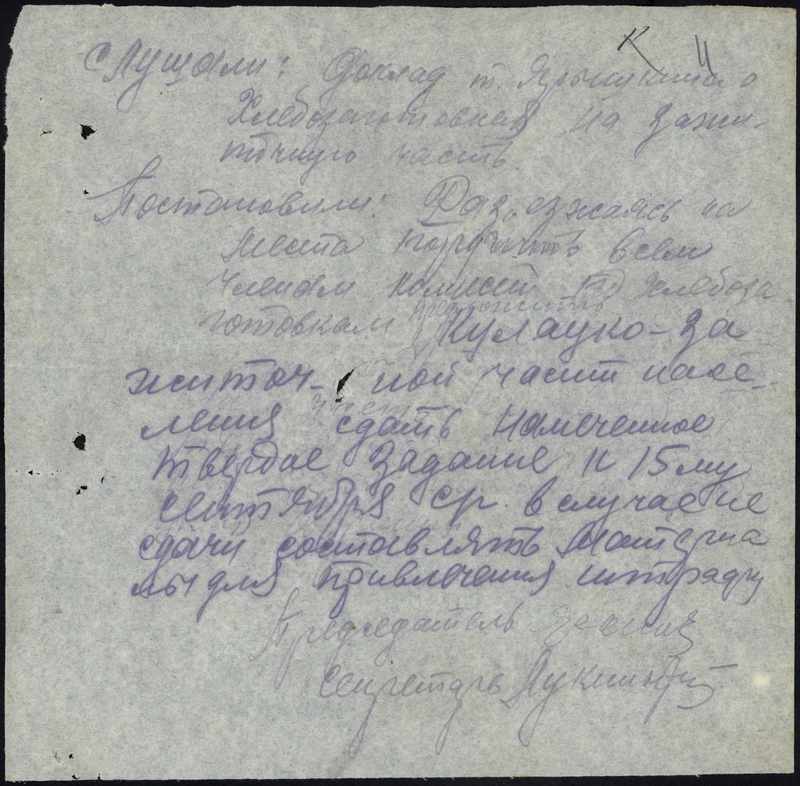 К 4
Слушали: Доклад т. Ярыкина о
Хлебозаготовках на зажи-
точную часть.
Постановили: Раз"езжаясь на
места поручить всем
членам комисет по хлебоза
готовкам предложить Кулацко-за
житоч- ной части насе-
ления сдать намеченное
твердое задание к 15му
сентября с.р. в случае не
сдачи составлять материа
лы для привлечения штрафу
Председатель
Секретарь